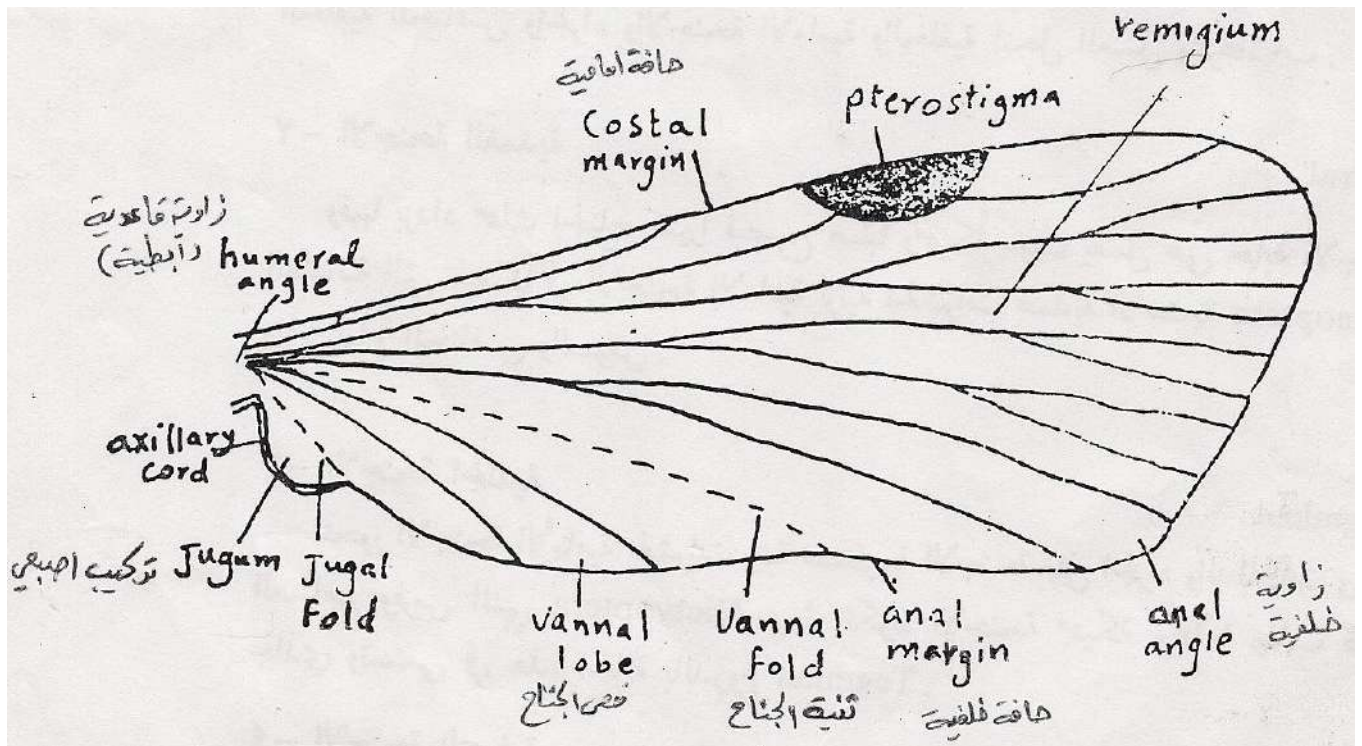 remigium
حافة امامية
Costal
margin
pterostigma
زاوية قاعدية
(ابطية)
humeral
angle
axillary
cord
Jugum
تركيب اصبعي
Jugal
Fold
vannal
lobe
فص الجناح
Vannal
fold
ثنية الجناح
anal
margin
حافة خلفية
anal
angle
زاوية
خلفية